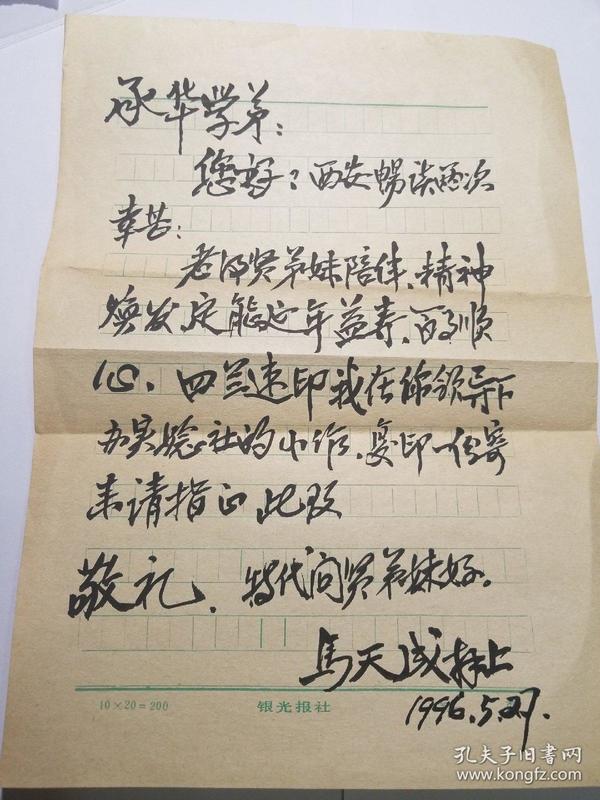 承华学弟:
您好?西安畅谈两次
幸甚:
老师贤弟妹陪伴、精神
焕发、定能延年益寿、百顺
心、四兰速印我在你领导下
办实验社的小作、复印一份寄
来请指正 此致
敬礼、特代问贤弟妹好。
馬天成拜上
1996.5.27.
10×20=200 银光报社
孔夫子旧书网
www.kongfz.com